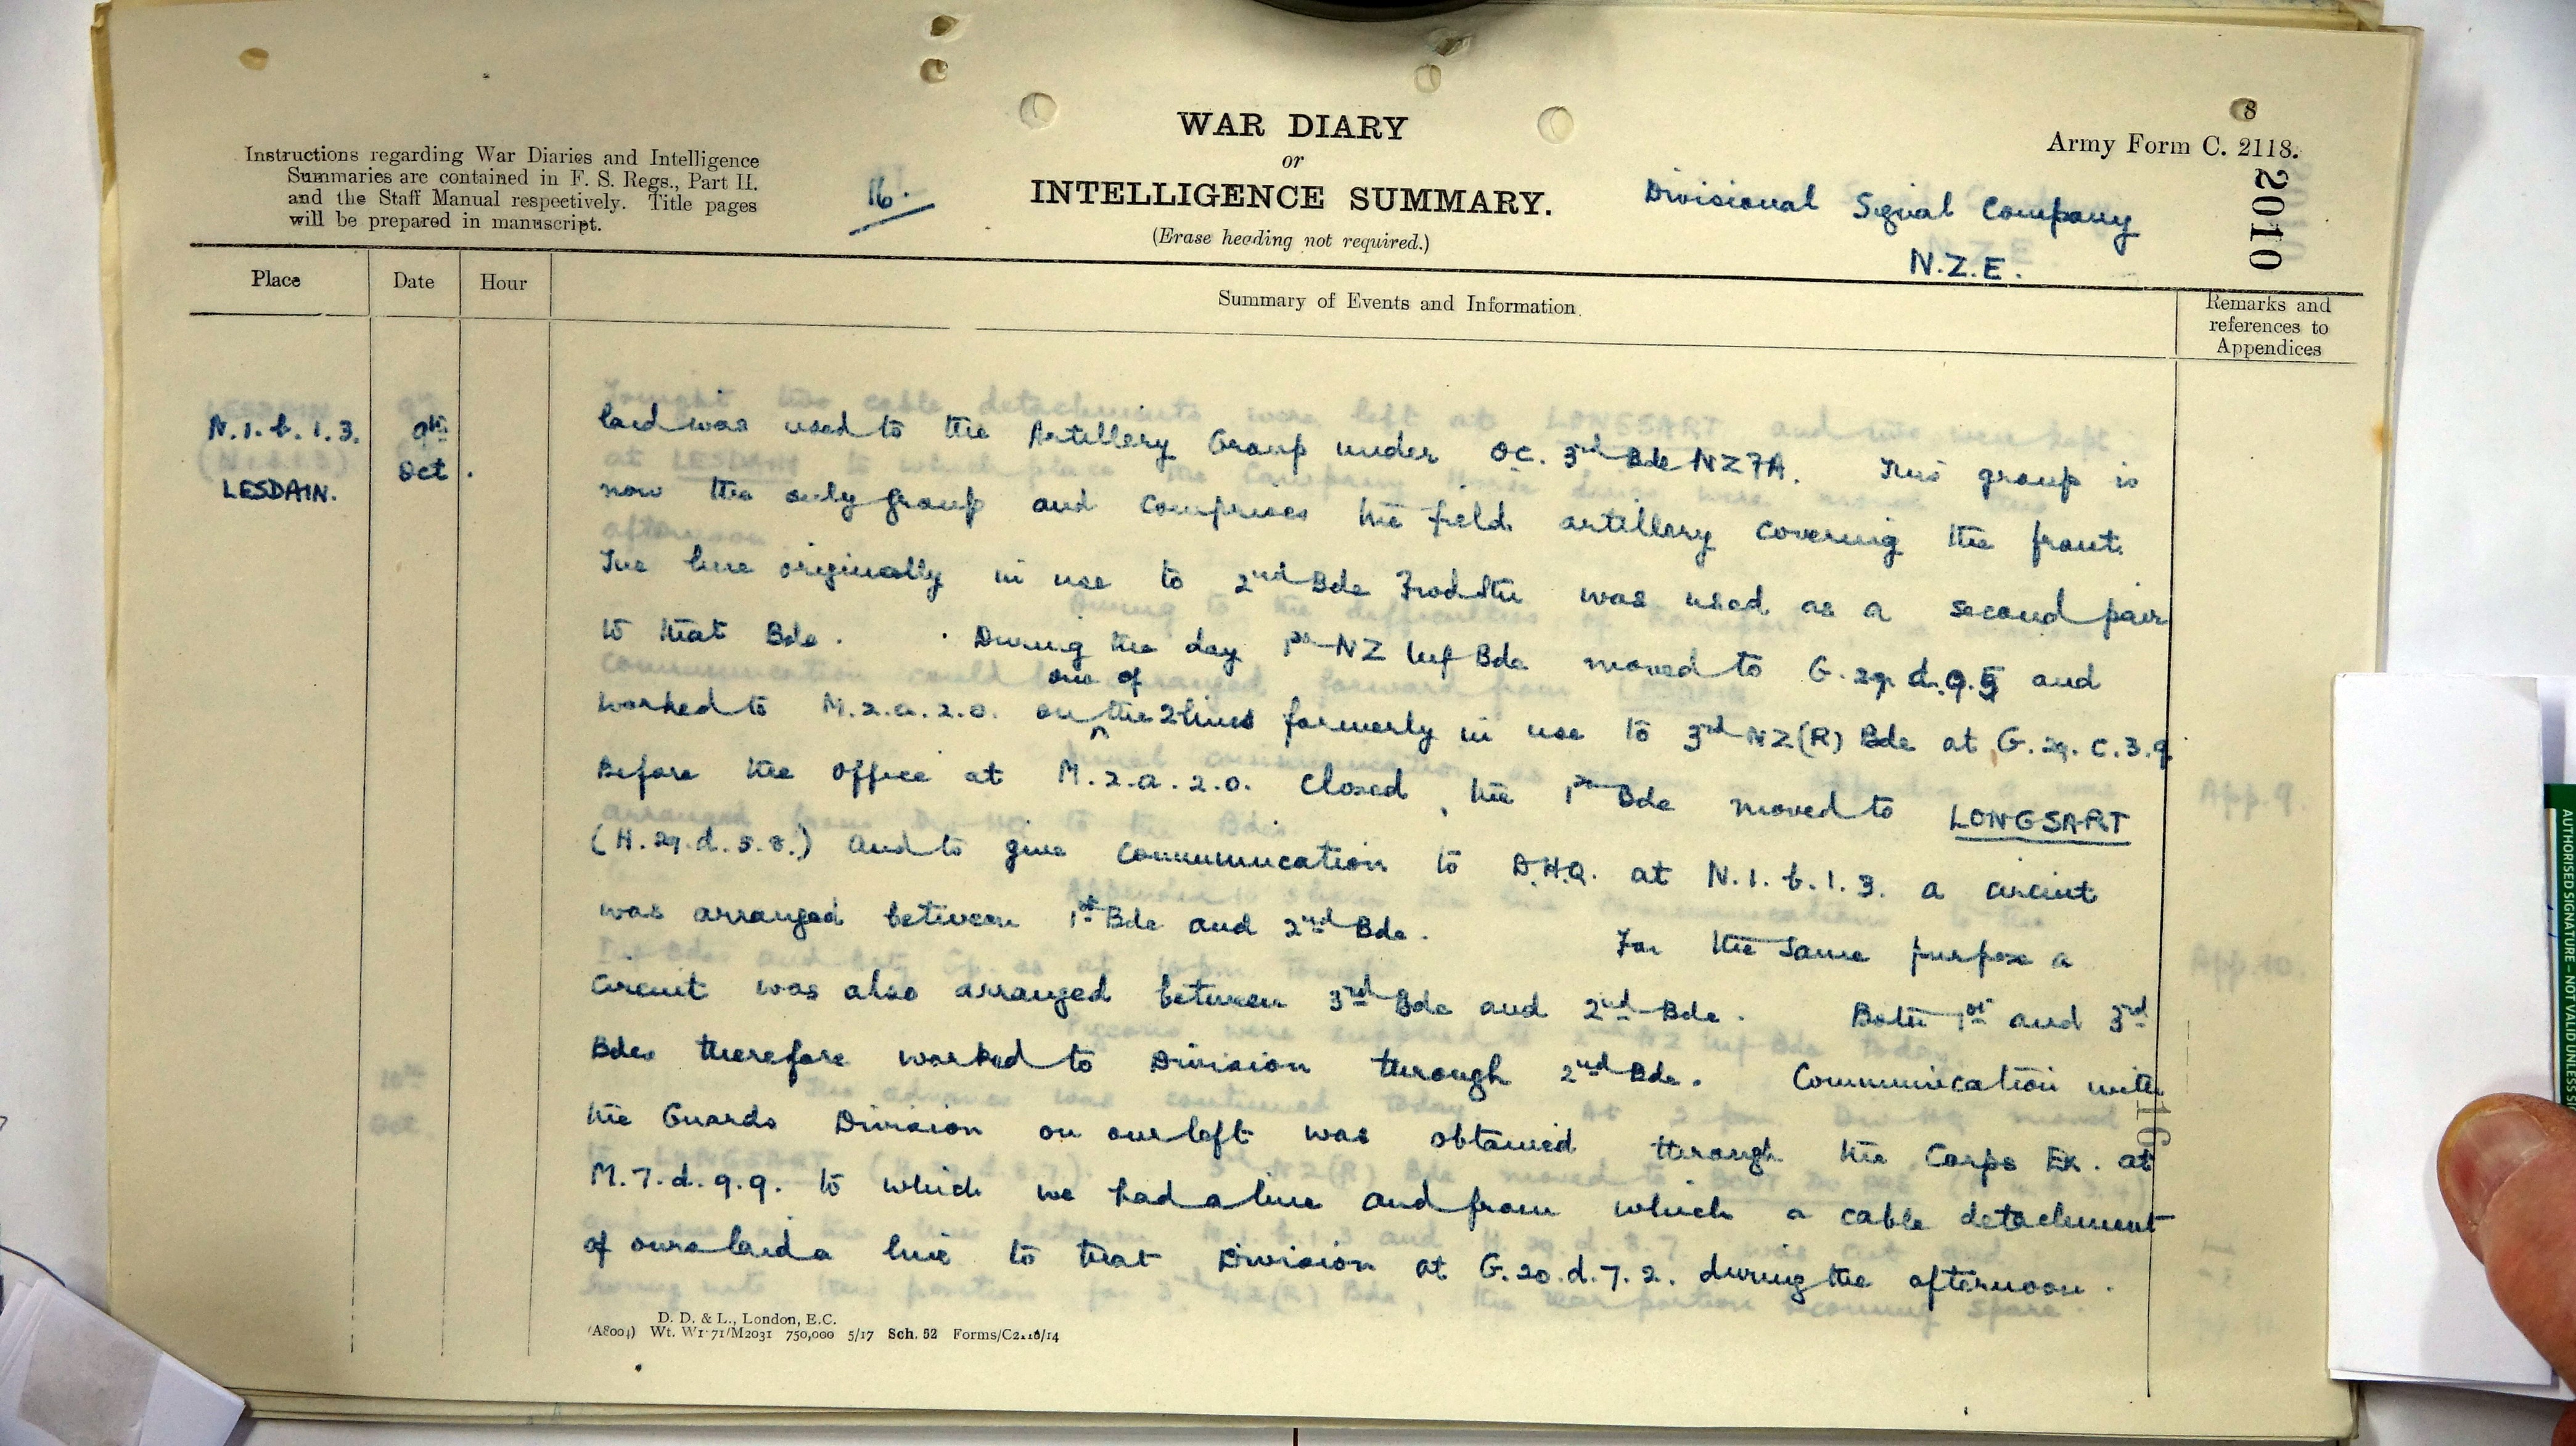 8
Army Form C. 2118.
2010
WAR DIARY
or
INTELLIGENCE SUMMARY.
(Erase heading not required.)
Instructions regarding War Diaries and Intelligence
Summaries are contained in F. S. Regs., Part II.
and the Staff Manual respectively. Title pages
will be prepared in manuscript.
16.
Divisional Signal Company
N.Z.E.
Place
Date
Hour
Summary of Events and Information
Remarks and
references to
Appendices
N.1.b.1.3.
LESDAIN.
9th
Oct.
laid was used to the Artillery Group under OC. 3rd Bde NZFA. This group is
now the only group and comprises the field artillery covering the front.
The line originally in use to 2nd Bde was used as a second pair
to that Bde. During the day 1st NZ Inf Bde moved to G.29.d.9.5 and
worked to M.2.a.2.0. on one of the 2 lines formerly in use to 3rd NZ(R) Bde at G.29.c.3.9.
Before the office at M.2.a.2.0. closed, the 1st Bde moved to LONGSART
(H.29.d.8.8.) and to give communication to D.H.Q. at N.1.b.1.3. a circuit
was arranged between 1st Bde and 2nd Bde. For the same purpose a
circuit was also arranged between 3rd Bde and 2nd Bde. Both 1st and 3rd
Bdes therefore worked to Division through 2nd Bde. Communication with
the Guards Division on our left was obtained through the Corps Ex. at
M.7.d.9.9. to which we had a line and from which a cable detachment
of ours laid a line to that Division at G.20.d.7.2. during the afternoon.
16
D. D. & L., London, E.C.
(A8004) Wt. W1771/M2031 750,000 5/17 Sch. 52 Forms/C2118/14
AUTHORISED SIGNATURE - NOT VALID UNLESS SI